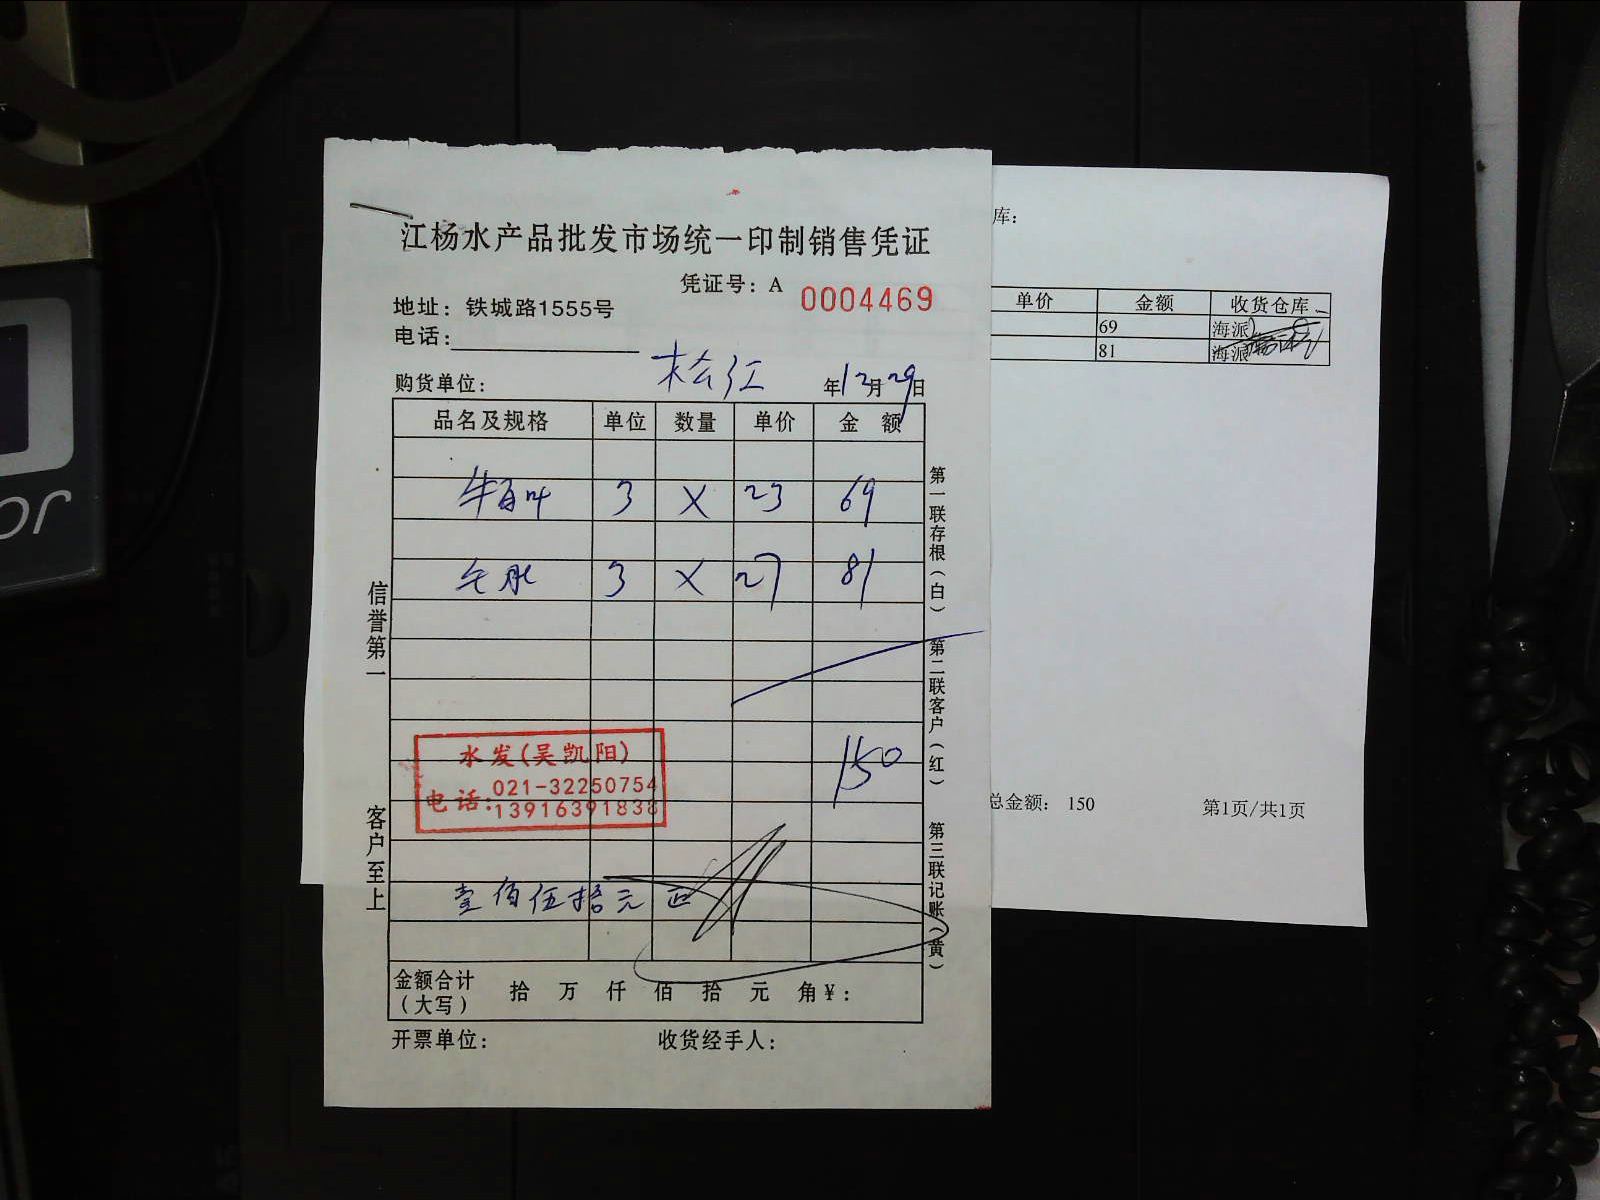 江杨水产品批发市场统一印制销售凭证
凭证号：A 0004469
地址：铁城路1555号
电话：
购货单位： 松江 年12月29日
品名及规格 单位 数量 单价 金 额
牛百叶 3 X 23 69
毛肚 3 X 27 81
150
水发(吴凯阳)
电话：021-32250754
13916391838
壹佰伍拾元正
金额合计（大写） 拾 万 仟 佰 拾 元 角￥：
开票单位： 收货经手人：
信誉第一
客户至上
第一联存根（白）
第二联客户（红）
第三联记账（黄）
库：
单价 金额 收货仓库
69 海派
81 海派
总金额： 150
第1页/共1页
or